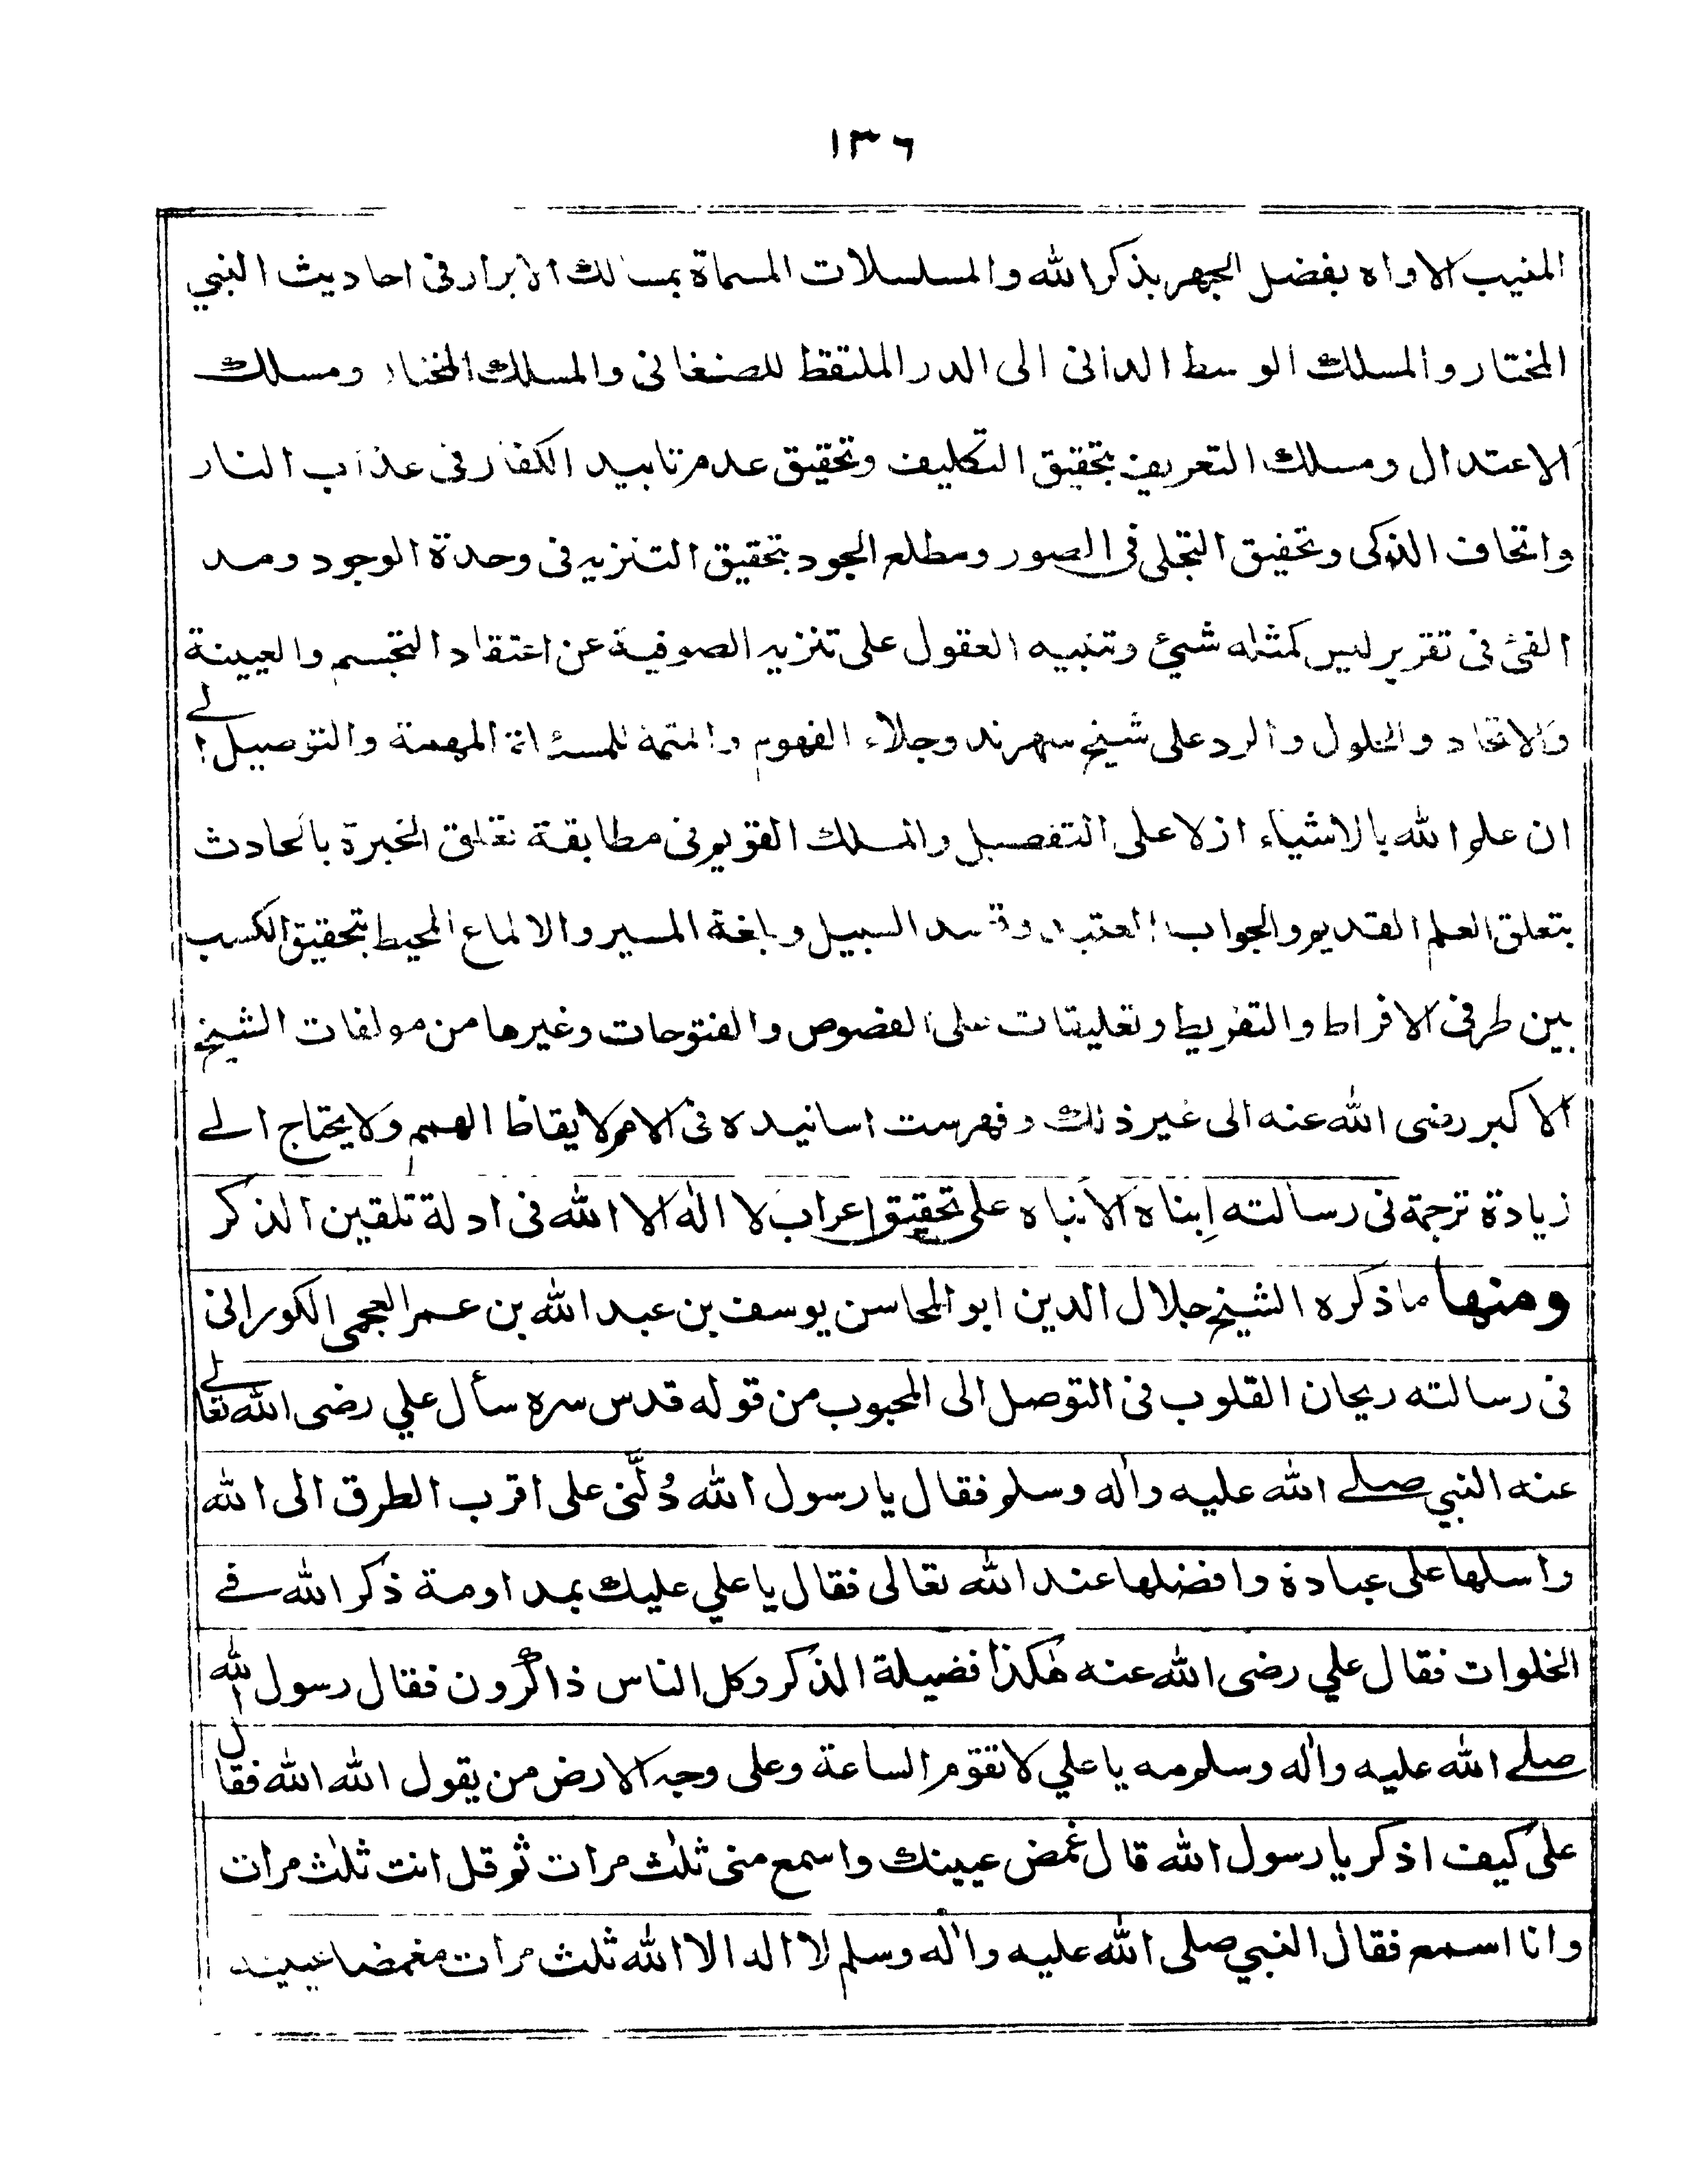 ١٣٦
المنيب الاواه بفضل الجهر بذكر الله والمسلسلات المسماة بمسالك الابرار فى احاديث النبي
المختار والمسلك الوسط الدانى الى الدر الملتقط للصغانى والمسلك المختار ومسلك
الاعتدال ومسلك التعريف بتحقيق التكليف وتحقيق عدم تابيد الكفار فى عذاب النار
واتحاف الذكى وتحقيق التجلى فى الصور ومطلع الجود بتحقيق التنزيه فى وحدة الوجود ومد
الفئ فى تقرير ليس كمثله شيئ وتنبيه العقول على تنزيه الصوفية عن اعتقاد التجسم والعينة
والاتحاد والحلول والرد على شيخ سهرند وجلاء الفهوم والمتمة للمسئلة المهمة والتوصيل الى
ان علم الله بالاشياء ازلا على التفصيل والمسلك القويم فى مطابقة تعلق الخبرة بالحادث
بتعلق العلم القديم والجواب العتيد وقصد السبيل وبلغة المسير والالماع المحيط بتحقيق الكسب
بين طرفى الافراط والتفريط وتعليقات على الفصوص والفتوحات وغيرها من مولفات الشيخ
الاكبر رضى الله عنه الى غير ذلك وفهرست اسانيده فى الامم لايقاظ الهمم ولا يحتاج الى
زيادة ترجمة فى رسالته اِبناه الانباه على تحقيق اعراب لا اله الا الله فى ادلة تلقين الذكر
ومنها ما ذكره الشيخ جلال الدين ابو المحاسن يوسف بن عبد الله بن عمر العجمى الكورانى
فى رسالته ريحان القلوب فى التوصل الى المحبوب من قوله قدس سره سأل علي رضى الله تعالى
عنه النبي صلى الله عليه واله وسلم فقال يا رسول الله دُلَّنى على اقرب الطرق الى الله
واسلها على عبادة وافضلها عند الله تعالى فقال يا علي عليك بمداومة ذكر الله فى
الخلوات فقال علي رضى الله عنه هكذا فضيلة الذكر وكل الناس ذاكرون فقال رسول الله
صلى الله عليه واله وسلم مه يا علي لا تقوم الساعة وعلى وجه الارض من يقول الله الله فقال
على كيف اذكر يا رسول الله قال غمض عينيك واسمع منى ثلث مرات ثم قل انت ثلث مرات
وانا اسمع فقال النبي صلى الله عليه واله وسلم لا اله الا الله ثلث مرات مغمضا عينيه